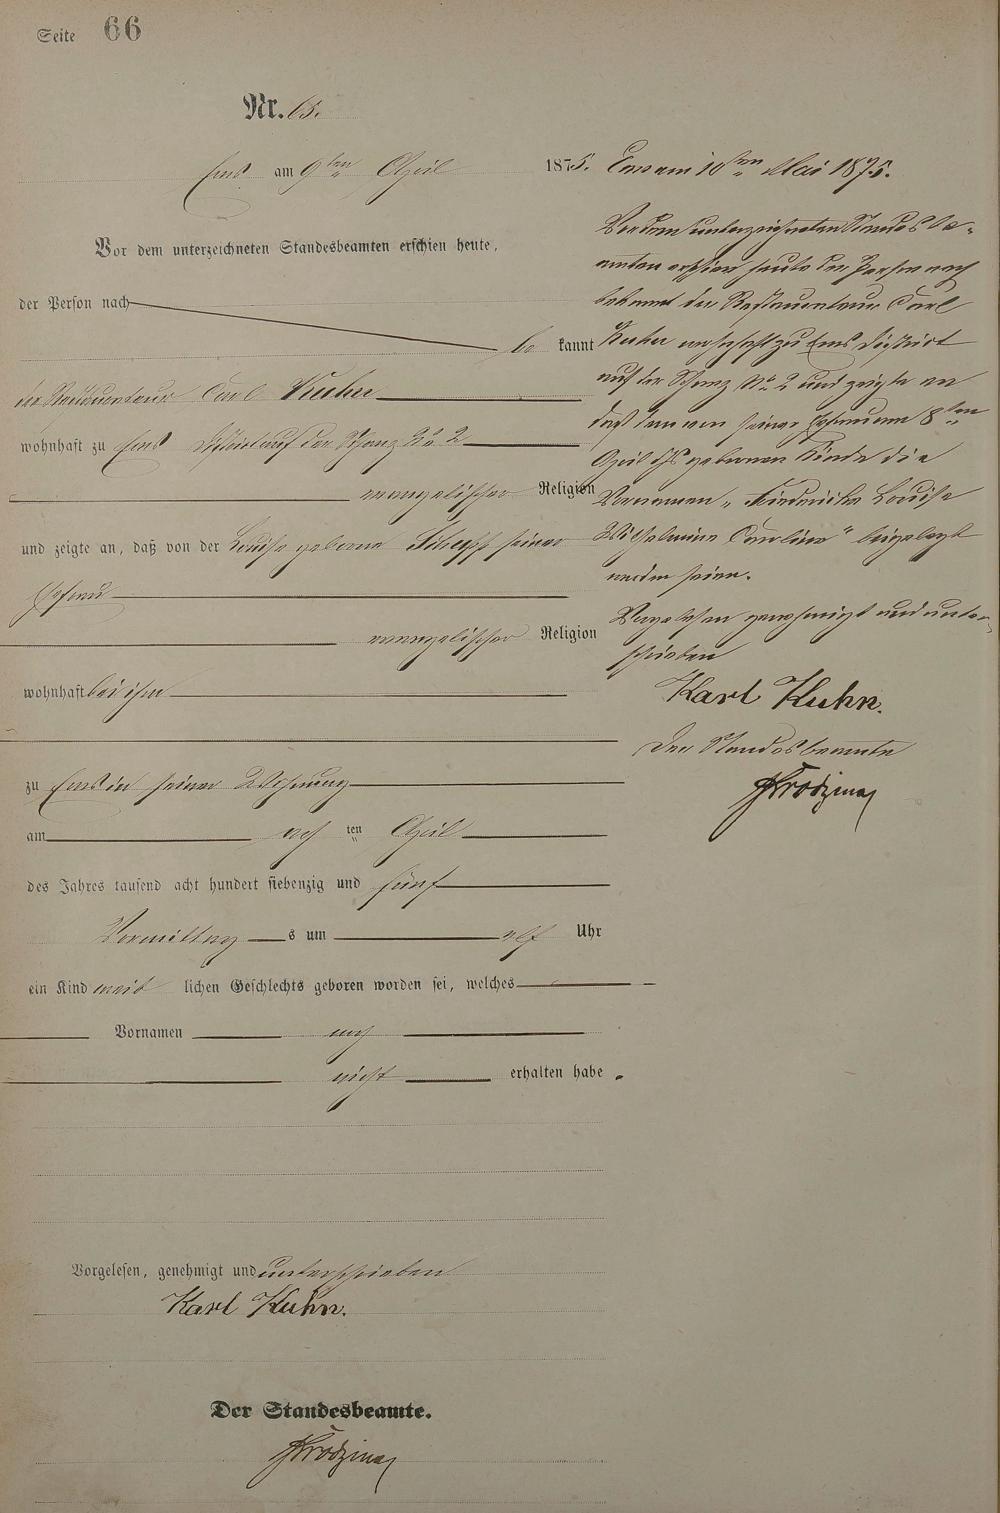 Seite 66
Nr. 65.
Ems am 9ten April 1875.
Vor dem unterzeichneten Standesbeamten erschien heute,
der Person nach
be kannt
der Restaurateur Carl Kuhn
wohnhaft zu Ems District auf der Schanz No 2
evangelischer Religion
und zeigte an, daß von der Louise geborene Schupp seiner
Ehefrau
evangelischer Religion
wohnhaft bei ihm
zu Ems in seiner Wohnung
am acht ten April
des Jahres tausend acht hundert siebenzig und fünf
Vormittag s um elf Uhr
ein Kind weib lichen Geschlechts geboren worden sei, welches
Vornamen noch
nicht erhalten habe.
Vorgelesen, genehmigt und unterschrieben
Karl Kuhn.
Der Standesbeamte.
Ems am 10ten Mai 1875.
Vor dem unterzeichneten Standesbe-
amten erschien heute der Person nach
bekannt der Restaurateur Carl
Kuhn wohnhaft zu Ems District
auf der Schanz No 2 und zeigte an
daß dem von seiner Ehefrau am 8ten
April geborenen Kinde die
Vornamen "Friederike Louise
Wilhelmine Caroline" beigelegt
worden seien.
Vorgelesen genehmigt und unter-
schrieben
Karl Kuhn.
Der Standesbeamte